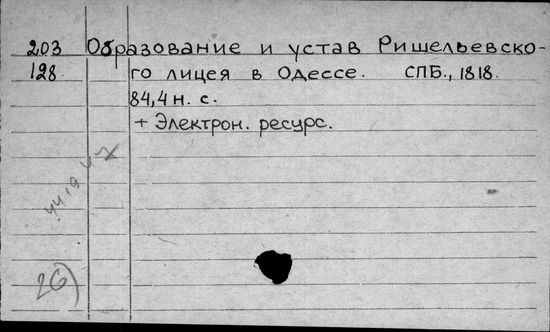 203 Образование и устав Ришельевско-
128. го лицея в Одессе. СПБ., 1818.
84,4 н. с.
+ Электрон. ресурс.
26)